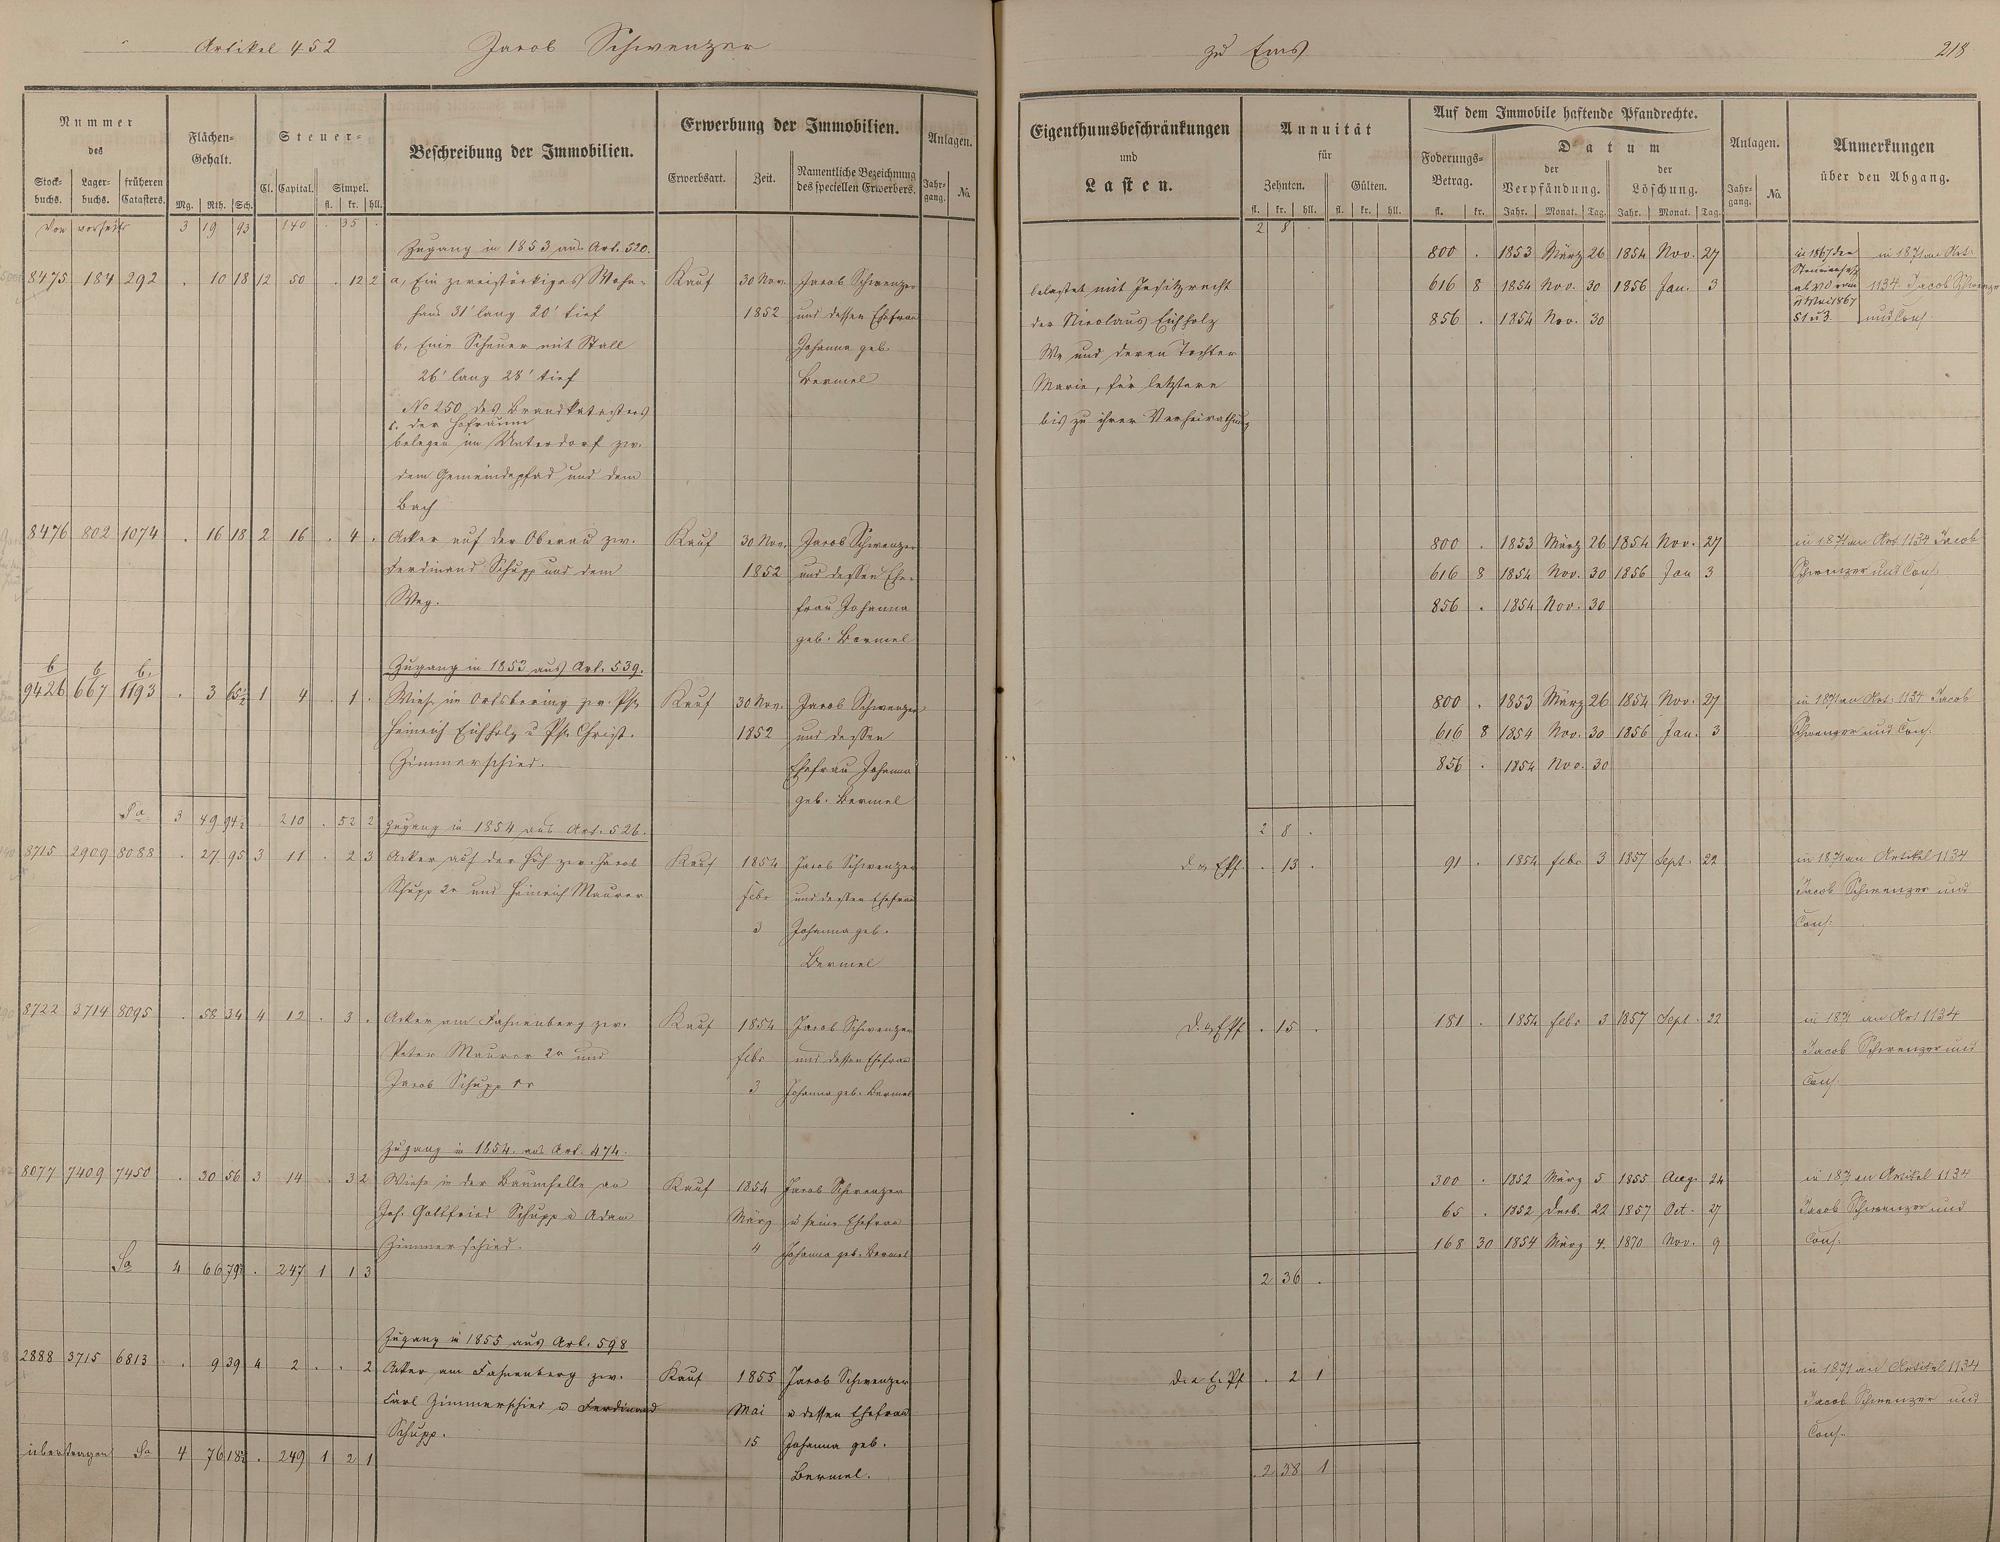 Artikel 452 Jacob Schwenzer zu Ems 218
Nummer des
Stock-buchs. Lager-buchs. früheren Catasters.
Flächen-Gehalt.
Mg. Rth. Sch.
Steuer-
Cl. Capital. Simpel.
fl. kr. hll.
Beschreibung der Immobilien.
Erwerbung der Immobilien.
Erwerbsart. Zeit. Namentliche Bezeichnung des speciellen Erwerbers.
Anlagen.
Jahr-gang. No.
Eigenthumsbeschränkungen
und
Lasten.
Annuität
für
Zehnten. Gülten.
fl. kr. hll. fl. kr. hll.
Auf dem Immobile haftende Pfandrechte.
Foderungs-Betrag.
fl. kr.
Datum
der Verpfändung. der Löschung.
Jahr. Monat. Tag. Jahr. Monat. Tag.
Anlagen.
Jahr-gang. No.
Anmerkungen
über den Abgang.
Von vorseits 3 19 93 140 . 35 . 2 8 .
Zugang in 1853 aus Art. 520.
8475 184 292 . 10 18 12 50 . 12 2 a, Ein zweistöckiges Wohn-
haus 31' lang 20' tief
b, Eine Scheuer mit Stall
26' lang 28' tief
No 250 des Brandkatasters
c. der Hofraum
belegen im Unterdorf zw.
dem Gemeindepfad und dem
Bach
Kauf 30 Nov. 1852
Jacob Schwenzer
und dessen Ehefrau
Johanna geb.
Bermel
belastet mit Besitzrecht
der Nicolaus Eichholz
We und deren Tochter
Marie, für letztere
bis zu ihrer Verheirathung
800 . 1853 März 26 1854 Nov. 27
616 8 1854 Nov. 30 1856 Jan. 3
856 . 1854 Nov. 30
in 1867 der
in 1871 an Art.
1134 Jacob Schwenzer
und Cons.
8476 802 1074 . 16 18 2 16 . 4 . Acker auf der Oberau zw.
Ferdinand Schupp und dem
Weg.
Kauf 30 Nov. 1852
Jacob Schwenzer
und dessen Ehe-
frau Johanna
geb. Bermel
800 . 1853 März 26 1854 Nov. 27
616 8 1854 Nov. 30 1856 Jan 3
856 . 1854 Nov. 30
in 1871 an Art 1134 Jacob
Schwenzer und Cons.
Zugang in 1853 aus Art. 539.
b 9426 b 667 b. 1193 . 3 65½ 1 4 . 1 . Wiese im Ortsbering zw. Phr.
Heinrich Eichholz u Phr. Christ.
Zimmerschied.
Kauf 30 Nov. 1852
Jacob Schwenzer
und dessen
Ehefrau Johanna
geb. Bermel
800 . 1853 März 26 1854 Nov. 27
616 8 1854 Nov. 30 1856 Jan. 3
856 . 1854 Nov. 30
in 1871 an Art. 1134 Jacob
Schwenzer und Cons.
Sa 3 49 94½ 210 . 52 2 2 8 .
Zugang in 1854 aus Art. 526.
8715 2909 8088 . 27 95 3 11 . 2 3 Acker auf der Höh zw. Jacob
Schupp 2r und Heinrich Maurer
Kauf 1854 febr 3
Jacob Schwenzer
und dessen Ehefrau
Johanna geb.
Bermel
. 13 .
91 . 1854 febr 3 1857 Sept. 22
in 1871 an Artikel 1134
Jacob Schwenzer und
Cons.
8722 3714 8095 . 58 34 4 12 . 3 . Acker am Fahnenberg zw.
Peter Maurer 2r und
Jacob Schupp 1r
Kauf 1854 febr 3
Jacob Schwenzer
und dessen Ehefrau
Johanna geb. Bermel
. 15 .
181 . 1854 febr 3 1857 Sept. 22
in 1871 an Art 1134
Jacob Schwenzer und
Cons.
Zugang in 1854. aus Art. 474.
8077 7409 7450 . 30 56 3 14 . 3 2 Wiese in der Baumhelle zw
Joh. Gottfried Schupp u Adam
Zimmerschied.
Kauf 1854 März 4
Jacob Schwenzer
u seine Ehefrau
Johanna geb. Bermel
300 . 1852 März 5 1855 Aug. 24
65 . 1852 Decb. 22 1857 Oct. 27
168 30 1854 März 4. 1870 Nov. 9
in 1871 an Artikel 1134
Jacob Schwenzer und
Cons.
Sa 4 66 79½ . 247 1 1 3 2 36 .
Zugang in 1855 aus Art. 598
2888 3715 6813 . 9 39 4 2 . . 2 Acker am Fahnenberg zw.
Carl Zimmerschied u Ferdinand
Schupp.
Kauf 1855 Mai 15
Jacob Schwenzer
u dessen Ehefrau
Johanna geb.
Bermel.
. 2 1
in 1871 an Artikel 1134
Jacob Schwenzer und
Cons.
übertragen Sa 4 76 18½ . 249 1 2 1 2 38 1